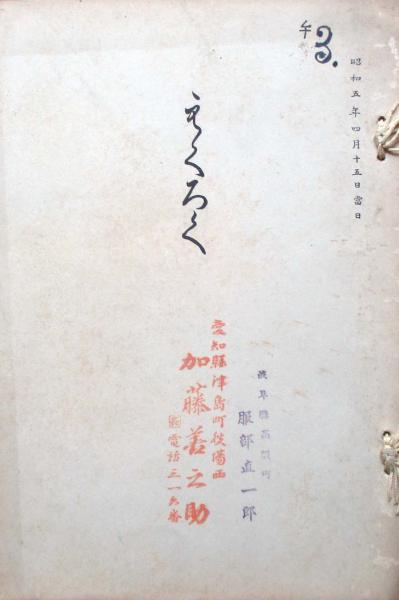 午
3.
昭和五年四月十五日當日
もくろく
岐阜縣高須町
服部直一郎
愛知縣津島町役場西
加藤善之助
電話三一六番